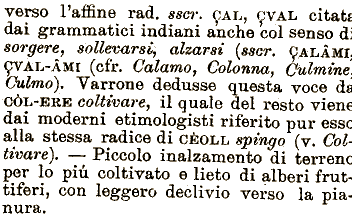 verso l'affine rad. sscr. ÇAL, ÇVAL citata
dai grammatici indiani anche col senso di
sorgere, sollevarsi, alzarsi (sscr. ÇALÂMI,
ÇVAL-ÂMI (cfr. Calamo, Colonna, Culmine,
Culmo). Varrone dedusse questa voce da
CÒL-ERE coltivare, il quale del resto viene
dai moderni etimologisti riferito pur esso
alla stessa radice di CÈOLL spingo (v. Col-
tivare). — Piccolo inalzamento di terreno
per lo piú coltivato e lieto di alberi frut-
tiferi, con leggero declivio verso la pia-
nura.